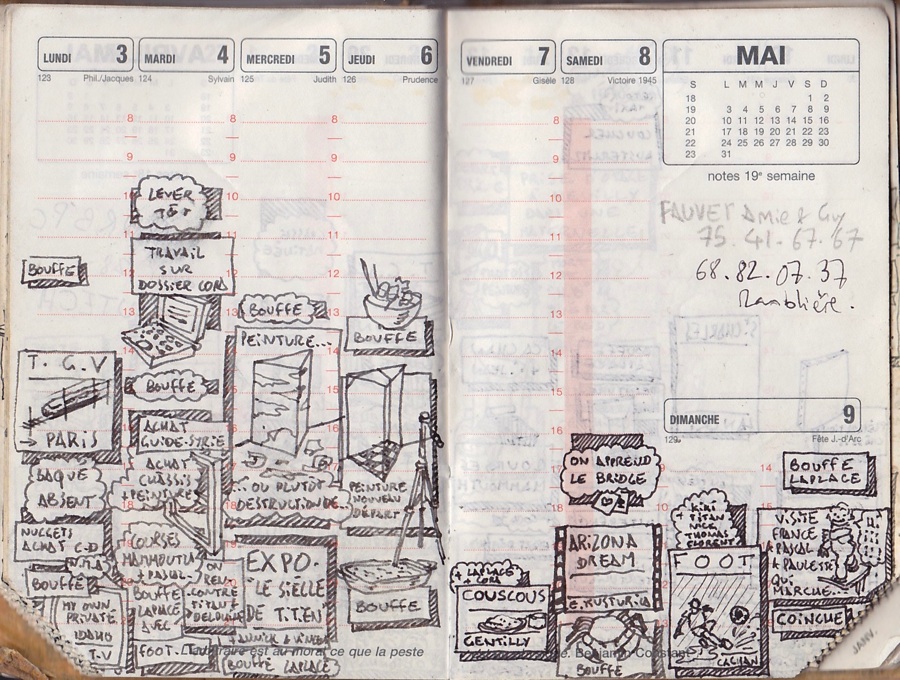 LUNDI 3
123 Phil./Jacques
8
9
BOUFFE
T.G.V
→ PARIS
BAQUE
ABSENT
NUGGETS
ACHAT C-D
BOUFFE
MY OWN
PRIVATE
IDAHO
T.V
MARDI 4
124 Sylvain
8
9
LEVER
TÔT
TRAVAIL
SUR
DOSSIER CORA
BOUFFE
ACHAT
GUIDE-SYRIE
ACHAT
CHASSIS
+ PEINTURE
COURSES
MAMMOUTH
+ PASCAL
BOUFFE
LAPLACE
AVEC
FOOT
MERCREDI 5
125 Judith
8
9
10
11
12
13
BOUFFE
PEINTURE...
...OU PLUTÔT
DESTRUCTION DE
ON
CONTRE
TITAN +
EXPO.
"LE SIECLE
DE TITIEN"
BOUFFE LAPLACE
JEUDI 6
126 Prudence
BOUFFE
PEINTURE
NOUVEAU
DÉPART
BOUFFE
est au moral ce que la peste
VENDREDI 7
127 Gisèle
8
9
10
11
12
13
14
15
16
+ LAPLACE
+ CORA
COUSCOUS
GENTILLY
SAMEDI 8
128 Victoire 1945
ON APPREND
LE BRIDGE
ARIZONA
DREAM
E. KUSTURICA
BOUFFE
Benjamin Constant
MAI
S L M M J V S D
18 1 2
19 3 4 5 6 7 8 9
20 10 11 12 13 14 15 16
21 17 18 19 20 21 22 23
22 24 25 26 27 28 29 30
23 31
notes 19e semaine
FAUVET Amie & Guy
75.41.67.67
68.82.07.37
Ramblière.
DIMANCHE 9
129 Fête J.-d'Arc
KIKI
TITAN
NICK
THOMAS
FLORENT
FOOT
CACHAN
14
BOUFFE
LAPLACE
VISITE
FRANCE
+ PASCAL
+ PAULETTE
QUI
MARCHE..
COINCHE
JANV.